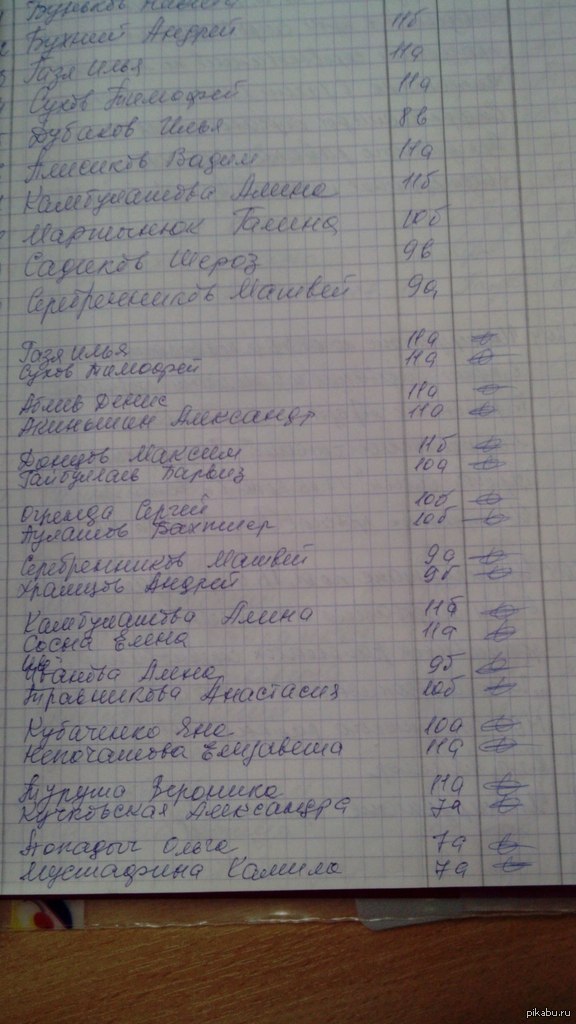 Бухний Андрей 11б
Газя Илья 11а
Сухов Тимофей 11а
Дубаков Илья 8в
Алисиков Вадим 11а
Камбулатова Алина 11б
Мартынюк Галина 10б
Садиков Шероз 9в
Серебренников Матвей 9а
Газя Илья 11а
Сухов Тимофей 11а
Аблив Денис 11а
Акиньшин Александр 11а
Донцов Максим 11б
Гайбуллаев Парвиз 10а
Огренда Сергей 10б
Аулашов Бахтиер 10б
Серебренников Матвей 9а
Храмцов Андрей 9б
Камбулатова Алина 11б
Сосна Елена 11а
Иванова Алена 9б
Травникова Анастасия 10б
Кубаченко Яна 10а
Непочатова Елизавета 11а
Турута Вероника 11а
Кучковская Александра 7а
Покадыч Ольга 7а
Мустафина Камила 7а
pikabu.ru